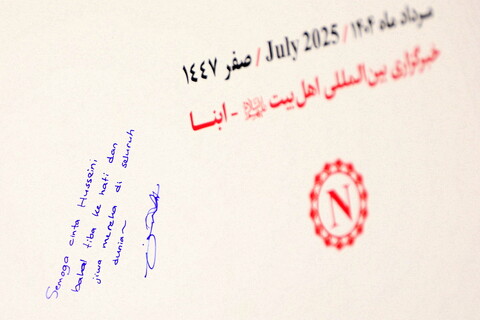 مرداد ماه ۱۴۰۴ / July 2025 / صفر ۱٤٤٧
خبرگزاری بین‌المللی اهل‌بیت - ابنـا
N
Semoga cinta Husseini
bakal tiba ke hati dan
jiwa mereka di seluruh
dunia~